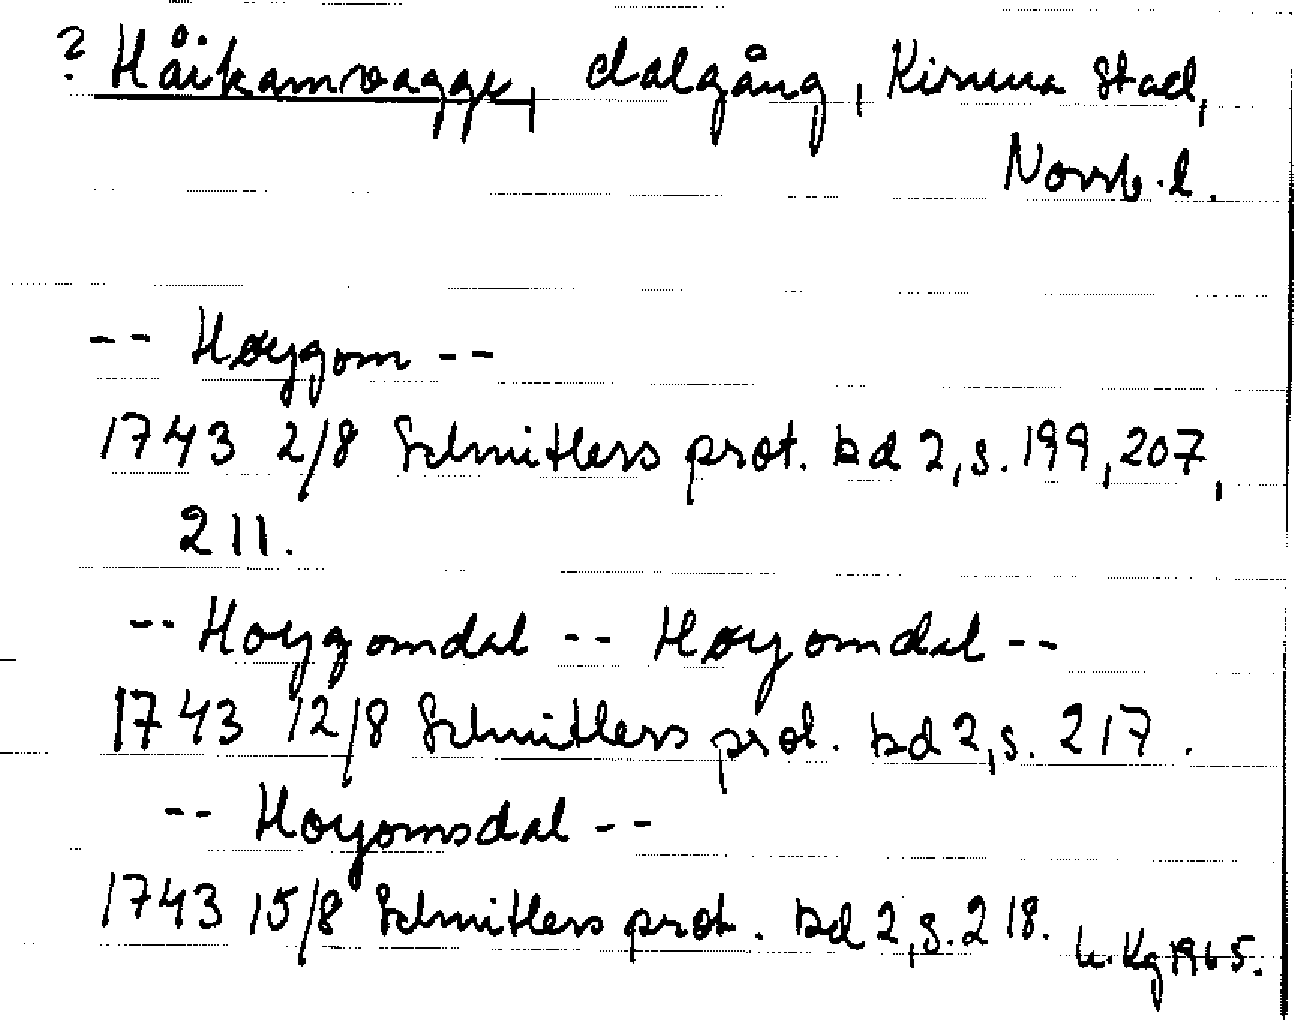 ? Håikamvagge, dalgång, Kiruna stad,
Norrb. l.
-- Høygom --
1743 2/8 Schnitlers prot. bd 2, s. 199, 207,
211.
-- Hoygomdal -- Høyomdal --
1743 12/8 Schnitlers prot. bd 2, s. 217.
-- Hoyomsdal --
1743 15/8 Schnitlers prot. bd 2, s. 218.
Kg 1965.